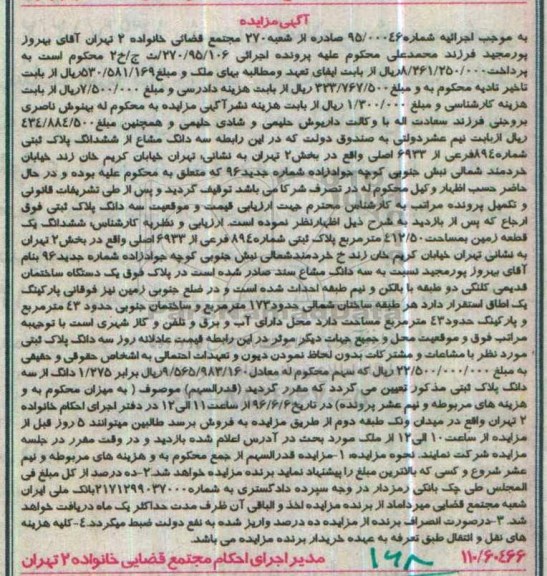 آگهی مزایده
به موجب اجرائیه شماره ۹۵/۰۰۰۴۶ صادره از شعبه ۲۷۰ مجتمع قضائی خانواده ۲ تهران آقای بهروز
پورمجید فرزند محمدعلی محکوم علیه پرونده اجرائی ۲۷۰/۹۵/۱۰۶/ت ج/خ۲ محکوم است به
پرداخت ۸/۳۶۱/۲۵۰/۰۰۰ ریال از بابت ایفای تعهد ومطالبه بهای ملک و مبلغ ۵۳۰/۵۸۱/۱۶۹ ریال از بابت
تاخیر تادیه محکوم به و مبلغ ۳۲۳/۷۶۷/۵۰۰ ریال از بابت هزینه دادرسی و مبلغ ۷/۵۰۰/۰۰۰ ریال از بابت
هزینه کارشناسی و مبلغ ۱/۳۰۰/۰۰۰ ریال از بابت هزینه نشر آگهی مزایده به محکوم له بهنوش ناصری
بروجنی فرزند سعادت اله با وکالت داریوش حلیمی و شادی حلیمی و همچنین مبلغ ۴۳۴/۸۸۴/۵۰۰
ریال ازبابت نیم عشردولتی به صندوق دولت که در این رابطه سه دانگ مشاع از ششدانگ پلاک ثبتی
شماره ۸۹۴ فرعی از ۶۹۳۳ اصلی واقع در بخش ۲ تهران به نشانی: تهران خیابان کریم خان زند خیابان
خردمند شمالی نبش جنوبی کوچه جوادزاده شماره جدید ۹۶ که متعلق به محکوم علیه بوده و در حال
حاضر حسب اظهار وکیل محکوم له در تصرف شرکا می باشد توقیف گردید و پس از طی تشریفات قانونی
و تکمیل پرونده مراتب به کارشناس محترم جهت ارزیابی قیمت و موقعیت سه دانگ پلاک ثبتی فوق
ارجاع که پس از بازدید به شرح ذیل اظهارنظر نموده است. ارزیابی و نظریه کارشناس: ششدانگ یک
قطعه زمین بمساحت ۴۱۲/۵۰ مترمربع پلاک ثبتی شماره ۸۹۴ فرعی از ۶۹۳۳ اصلی واقع در بخش ۲ تهران
به نشانی تهران خیابان کریم خان زند خ خردمندشمالی نبش جنوبی کوچه جوادزاده شماره جدید ۹۶ بنام
آقای بهروز پورمجید نسبت به سه دانگ مشاع سند صادر شده است در پلاک فوق یک دستگاه ساختمان
قدیمی کلنگی دو طبقه با بالکن و نیم طبقه احداث شده است و در ضلع جنوبی زمین نیز فوقانی پارکینگ
یک اطاق استقرار دارد هر طبقه ساختان شمالی حدود ۱۷۳ مترمربع و ساختمان جنوبی حدود ۴۳ مترمربع
و پارکینگ حدود ۴۳ مترمربع مساحت دارد محل دارای آب و برق و تلفن و گاز شهری است با توجه به
مراتب فوق و موقعیت محل و جمیع جهات دیگر موثر در این رابطه قیمت عادلانه روز سه دانگ پلاک ثبتی
مورد نظر با مشاعات و مشترکات بدون لحاظ نمودن دیون و تعهدات احتمالی به اشخاص حقوقی و حقیقی
به مبلغ ۲۲/۵۰۰/۰۰۰/۰۰۰ ریال که سهم محکوم له معادل ۹/۵۶۵/۹۸۳/۱۶۰ ریال برابر ۱/۲۷۵ دانگ از سه
دانگ پلاک ثبتی مذکور تعیین می گردد که مقرر گردید (قدرالسهم) موصوف ( به میزان محکوم به و
هزینه های مربوطه و نیم عشر پرونده) در تاریخ ۹۶/۶/۶ از ساعت ۱۱ الی ۱۲ در دفتر اجرای احکام خانواده
۲ تهران واقع در میدان ونک طبقه دوم از طریق مزایده به فروش برسد طالبین میتوانند ۵ روز قبل از
مزایده از ساعت ۱۰ الی ۱۲ از ملک مورد بحث در آدرس اعلام شده بازدید و در وقت مقرر در جلسه
مزایده شرکت نمایند. نحوه مزایده: ۱-مزایده قدرالسهم از جمع محکوم به و هزینه های مربوطه و نیم
عشر شروع و کسی که بالاترین مبلغ را پیشنهاد نماید برنده مزایده خواهد شد. ۲-ده درصد از کل مبلغ فی
المجلس طی چک بانکی رمزدار در وجه سپرده دادگستری به شماره ۲۱۷۱۲۹۹۰۳۷۰۰۰ بانک ملی ایران
شعبه مجتمع قضایی میرداماد از برنده مزایده اخذ و الباقی آن ظرف مدت حداکثر یک ماه دریافت خواهد
شد. ۳-درصورت انصراف برنده از مزایده ده درصد واریز شده به نفع دولت ضبط میگردد. ۴-کلیه هزینه
های نقل و انتقال طبق تعرفه به عهده خریدار برنده مزایده می باشد.
۱۱۰/۶۰۴۶۶ ۱۶۸ مدیر اجرای احکام مجتمع قضایی خانواده ۲ تهران